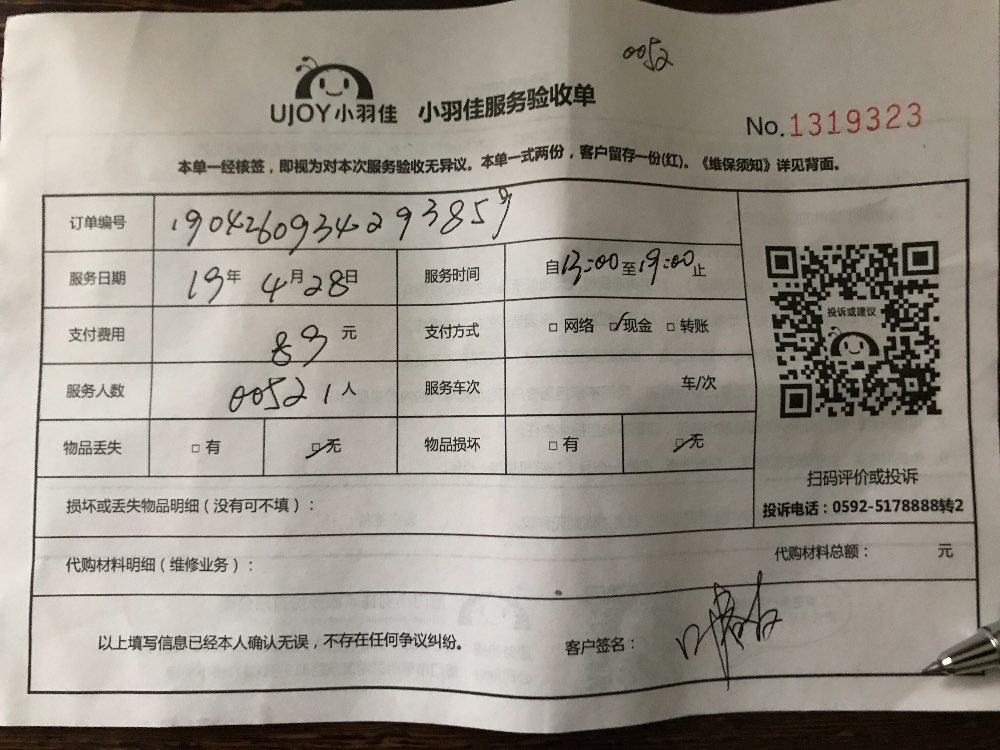 0052
UJOY小羽佳 小羽佳服务验收单
No.1319323
本单一经核签，即视为对本次服务验收无异议。本单一式两份，客户留存一份(红)。《维保须知》详见背面。
订单编号 1904260934293859
服务日期 19年4月28日 服务时间 自13:00至19:00止
支付费用 89元 支付方式 □网络 ☑现金 □转账
服务人数 0052 1人 服务车次 车/次
物品丢失 □有 ☑无 物品损坏 □有 ☑无
投诉或建议
扫码评价或投诉
投诉电话：0592-5178888转2
损坏或丢失物品明细（没有可不填）：
代购材料明细（维修业务）： 代购材料总额： 元
以上填写信息已经本人确认无误，不存在任何争议纠纷。 客户签名：